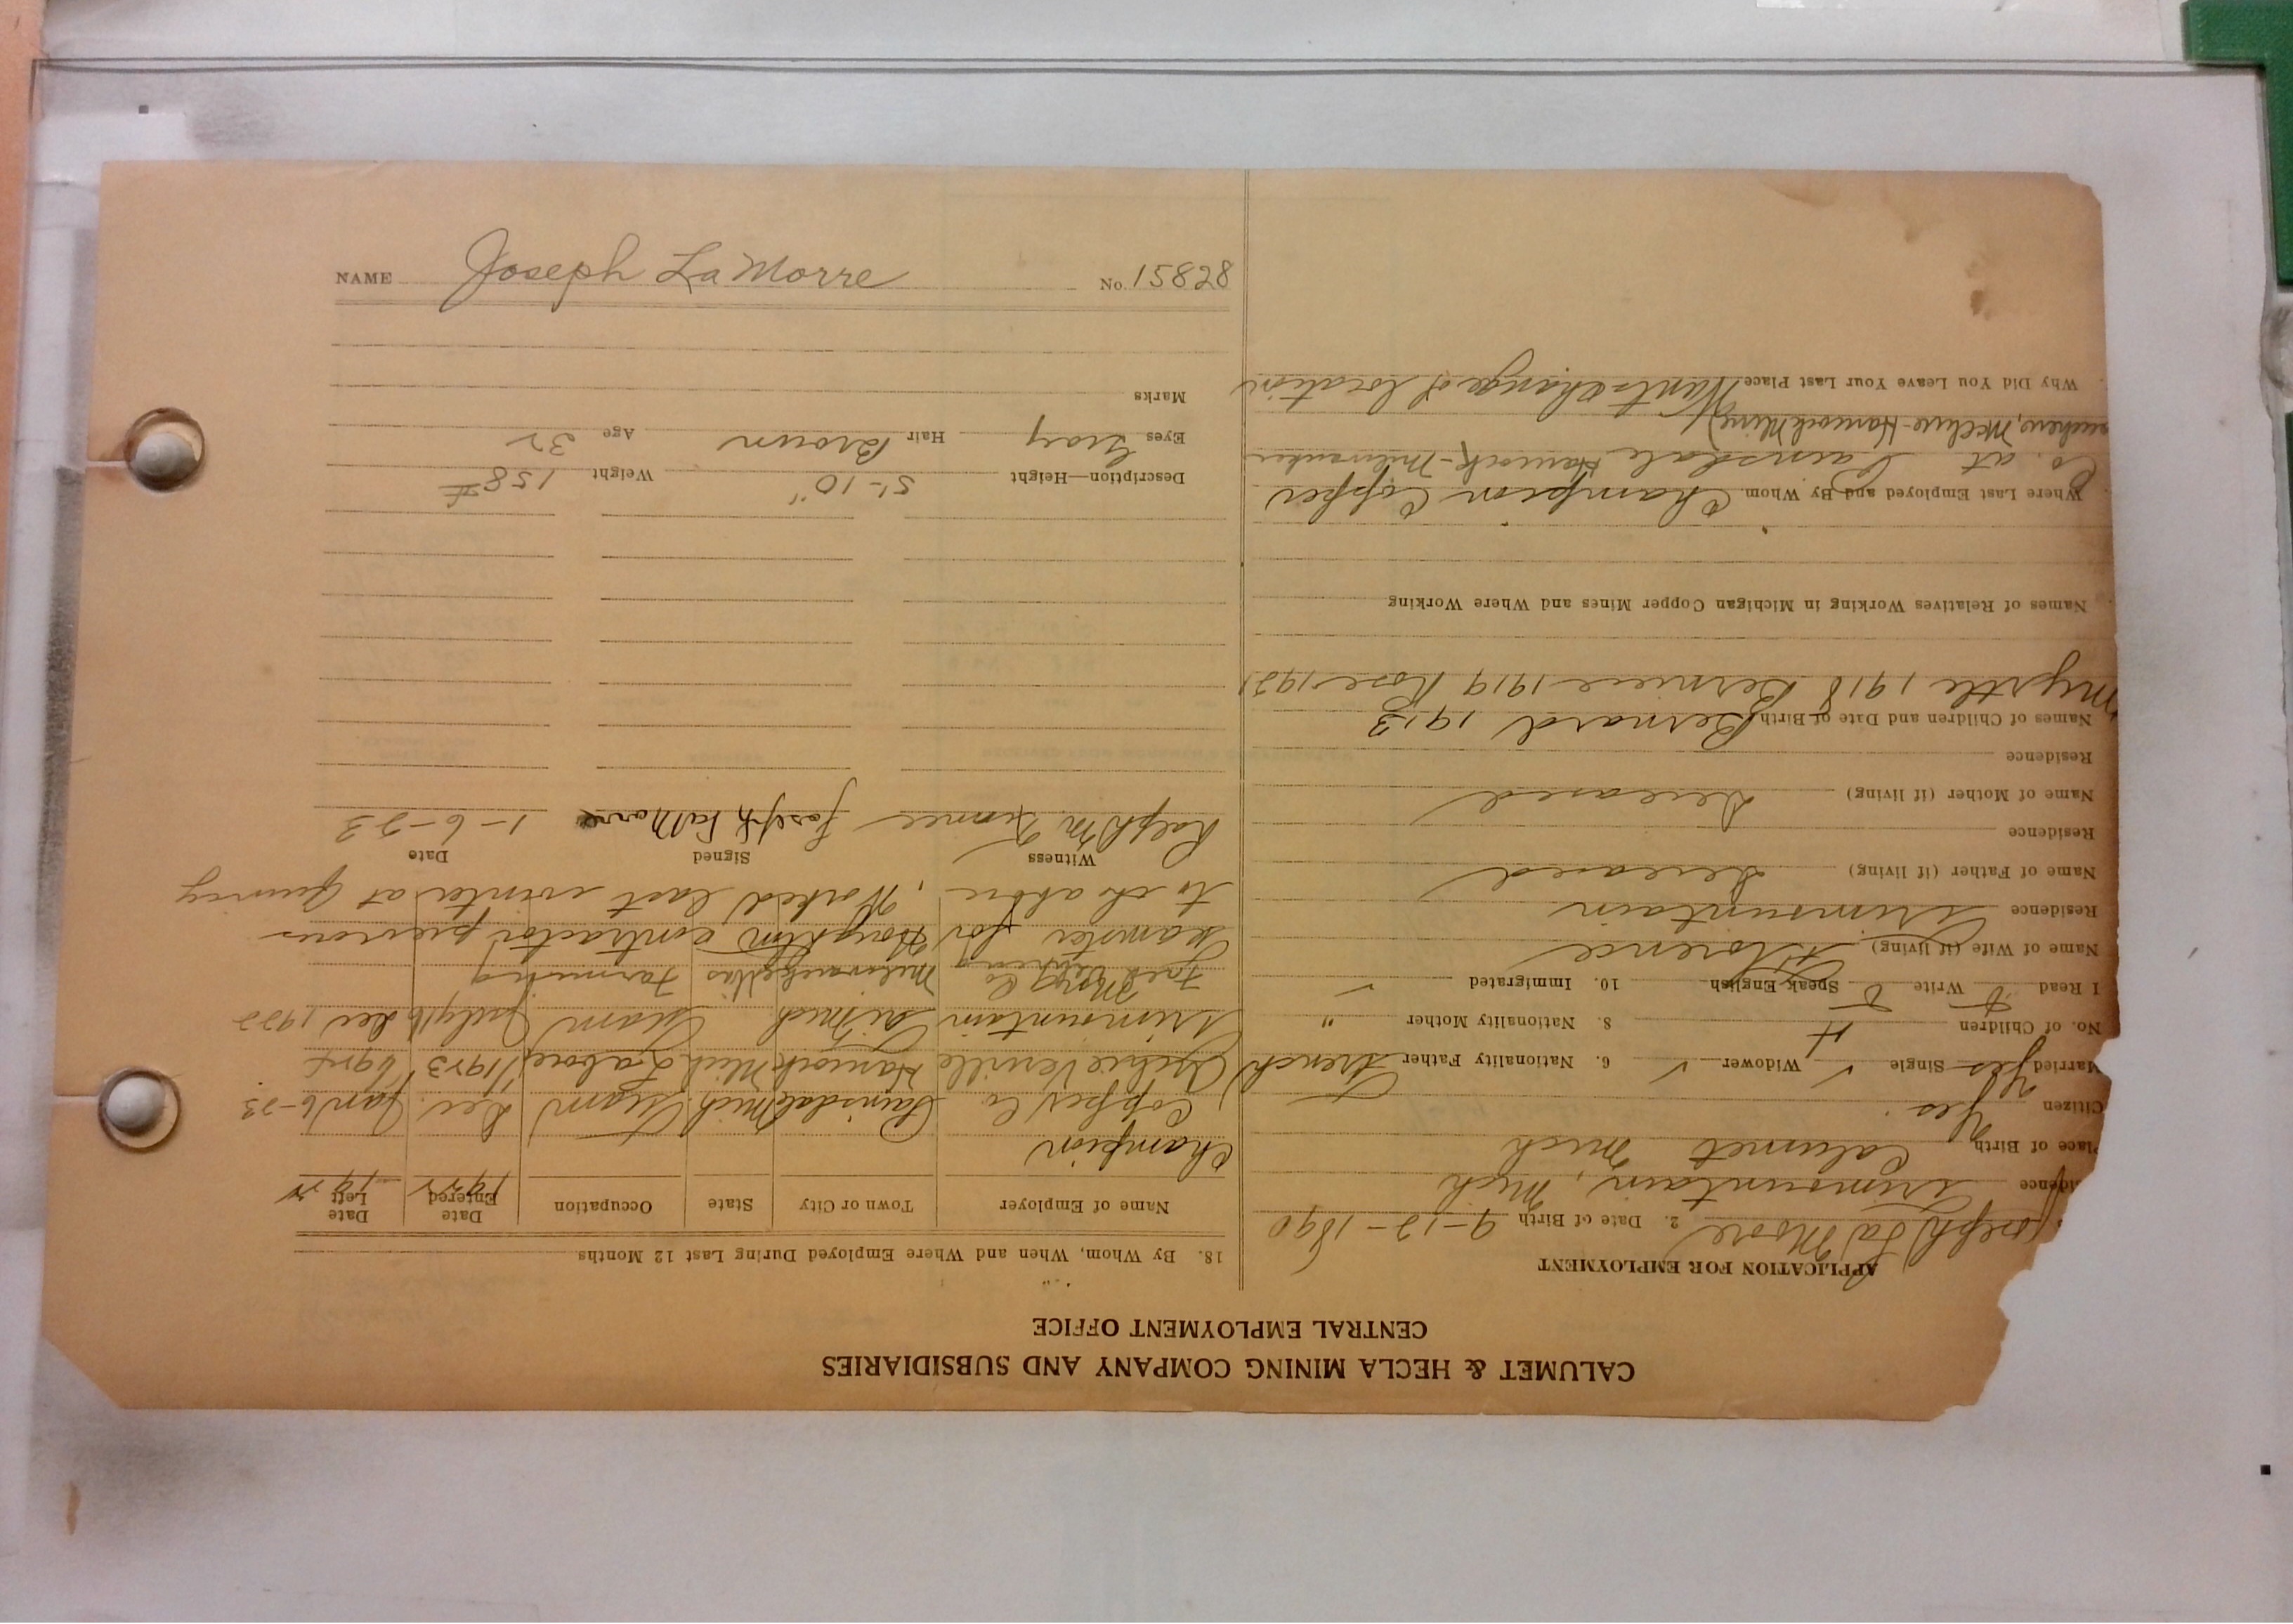 NAME Joseph LaMorre No. 15828
CALUMET & HECLA MINING COMPANY AND SUBSIDIARIES
CENTRAL EMPLOYMENT OFFICE
APPLICATION FOR EMPLOYMENT
Joseph La Moore 2. Date of Birth 9-12-1890
idence Trimountain, Mich
lace of Birth Calumet Mich
Citizen Yes
Married Yes Single ✓ Widower ✓ 6. Nationality Father French
No. of Children 4 8. Nationality Mother "
I Read Write Speak English 10. Immigrated ✓
Name of Wife (if living) Florence
Residence Trimountain
Name of Father (if living) Deceased
Residence
Name of Mother (if living) Deceased
Residence
Names of Children and Date of Birth Bernard 1913
Myrtle 1918 Berniece 1919 Rose 1921
Names of Relatives Working in Michigan Copper Mines and Where Working
Where Last Employed and By Whom Champion Copper
Co. at Painsdale Hancock-Milwaukee
McClure-Hancock Mine)
Why Did You Leave Your Last Place Wants change of location
18. By Whom, When and Where Employed During Last 12 Months
Name of Employer Town or City State Occupation Date Entered 1922 Date Left 19
Champion
Copper Co Painsdale Mich. Team Dec. Jan 6-23
Verville Hancock Mich Labor
Trimountain Mich Team July Dec 1922
Milwaukee Wis Farming
Teamster for Houghton contractor previous
to above, Worked last winter at Quincy
Witness Signed Date
Ralph M Joseph LaMorre 1-6-23
Description—Height 5'-10" Weight 158#
Eyes Gray Hair Brown Age 32
Marks